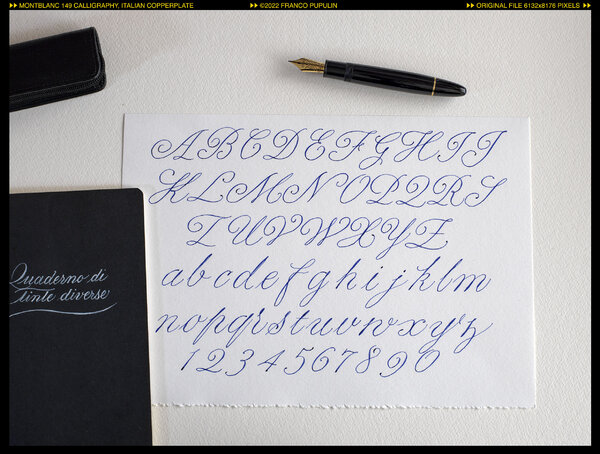 MONTBLANC 149 CALLIGRAPHY, ITALIAN COPPERPLATE ©2022 FRANCO PUPULIN ORIGINAL FILE 6132x8176 PIXELS
A B C D E F G H I J
K L M N O P Q R S
T U V W X Y Z
a b c d e f g h i j k l m
n o p q r s t u v w x y z
1 2 3 4 5 6 7 8 9 0
Quaderno di
tinte diverse